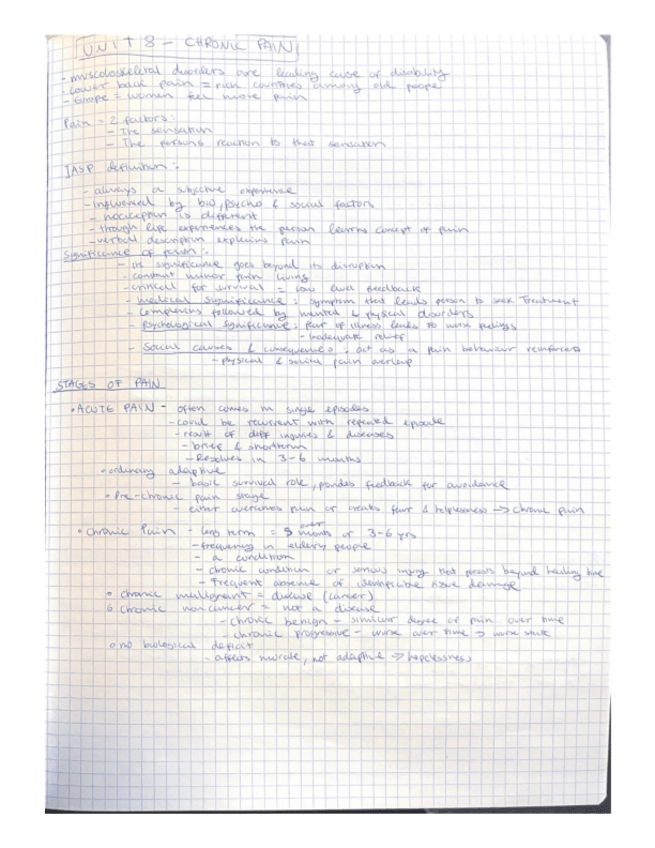 UNIT 8 - CHRONIC PAIN
- musculoskeletal disorders are leading cause of disability
- Lower back pain = rich countries among old people
- Europe = women feel more pain
Pain = 2 factors:
- The sensation
- The persons reaction to that sensation
IASP definition:
- always a subjective experience
- influenced by bio, psycho & social factors
- nociception is different
- though life experiences the person learns concept of pain
- verbal description explains pain
Significance of pain:
- its significance goes beyond its disruption
- constant minor pain living
- critical for survival = low level feedback
- medical significance: symptom that leads person to seek treatment
- complains followed by mental & physical disorders
- psychological significance: fear of illness leads to worse feelings
- inadequate relief
- Social causes & consequences: act as a pain behaviour reinforcers
- physical & social pain overlap
STAGES OF PAIN
• ACUTE PAIN - often comes in single episodes
- could be recurrent with repeated episode
- result of diff injuries & diseases
- brief & shortterm
- Resolves in 3-6 months
• ordinary adaptive
- basic survival role, provides feedback for avoidance
• Pre-chronic pain stage
- either overcomes pain or creates fear & helplessness → chronic pain
• Chronic Pain - long term = over months or 3-6 yrs
- frequency in elderly people
- a condition
- chronic condition or serious injury that persists beyond healing time
- frequent absence of identifiable tissue damage
• chronic malignant = disease (cancer)
• chronic noncancer = not a disease
- chronic benign - similar degree of pain over time
- chronic progressive - worse over time → worse state
• no biological deficit
- affects morale, not adaptive → helplessness